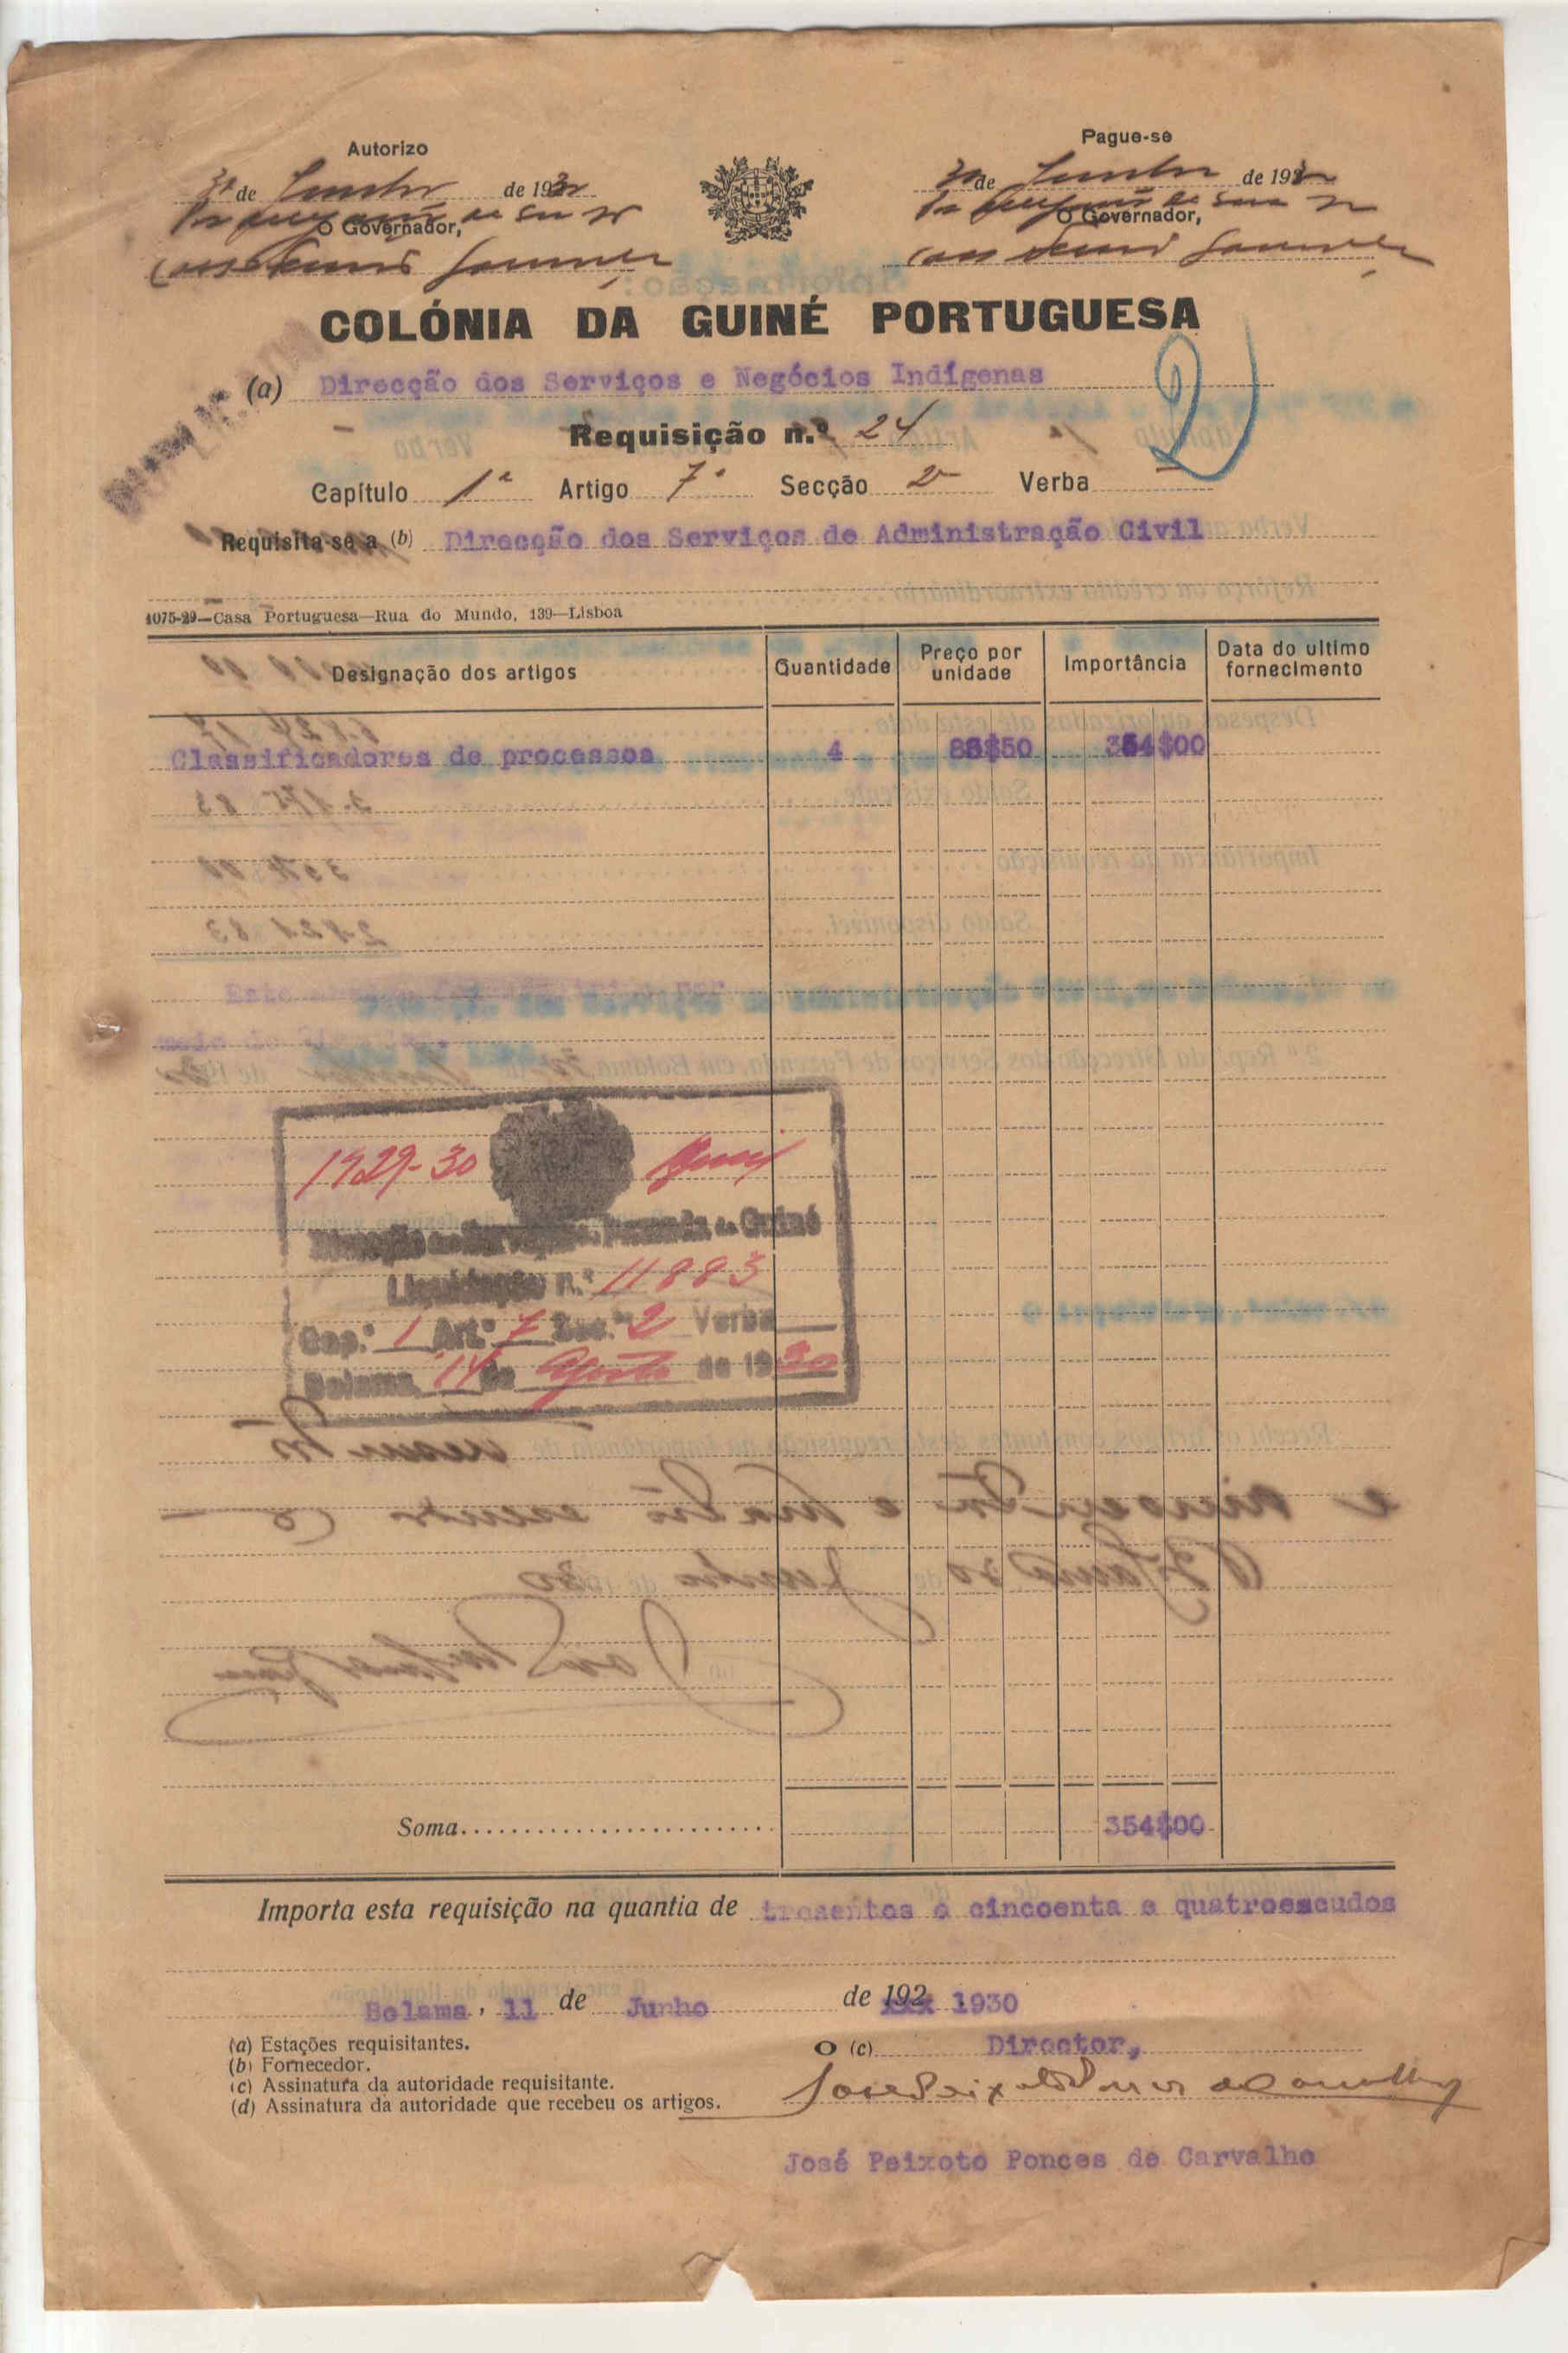 Autorizo
30 de Junho de 1930
O Governador,
Pague-se
30 de Junho de 1930
O Governador,
COLÓNIA DA GUINÉ PORTUGUESA
(a) Direcção dos Serviços e Negócios Indígenas
2
Requisição n.º 24
Capítulo 1º Artigo 7º Secção 2ª Verba
Requisita-se a (b) Direcção dos Serviços de Administração Civil
1075-29—Casa Portuguesa—Rua do Mundo, 139—Lisboa
Designação dos artigos Quantidade Preço por unidade Importância Data do ultimo fornecimento
Classificadores de processos 4 88$50 354$00
1929-30
Direcção dos Serviços de Fazenda da Guiné
Liquidação n.º 11883
Cap.º 1 Art.º 7 Sec.ª 2 Verba
Bolama, 14 de Agosto de 1930
Soma 354$00
Importa esta requisição na quantia de tresentos e cincoenta e quatroescudos
Bolama, 11 de Junho de 192 xxx 1930
(a) Estações requisitantes.
(b) Fornecedor.
(c) Assinatura da autoridade requisitante.
(d) Assinatura da autoridade que recebeu os artigos.
O (c) Director,
José Peixoto Ponces de Carvalho
José Peixoto Ponces de Carvalho